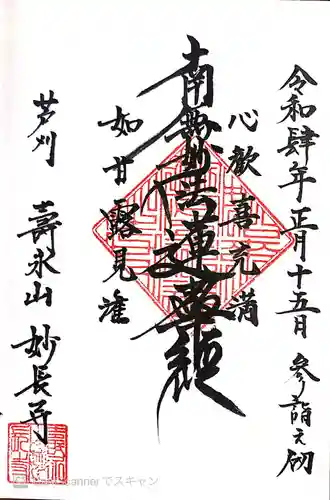 令和肆年正月十五日 参詣之砌
心歓喜充満
南無妙法蓮華経
如甘露見潅
芦刈 壽永山 妙長寺
でスキャン